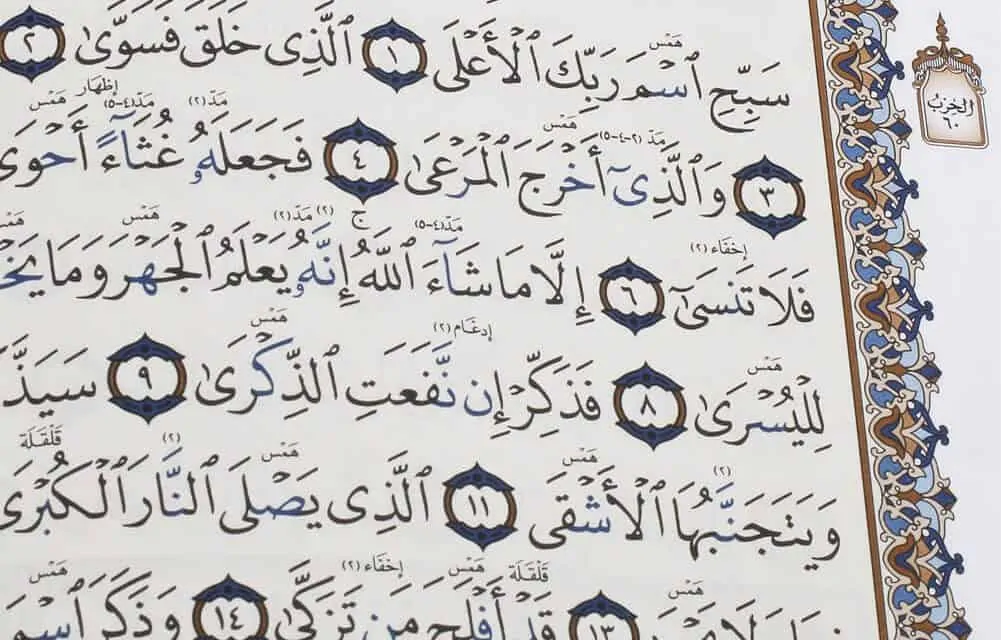 هَمْس
سَبِّحِ ٱسْمَ رَبِّكَ ٱلْأَعْلَى ١ ٱلَّذِى خَلَقَ فَسَوَّىٰ ٢
الحِزْبُ
٦٠
مَدّ (٢-٤-٥) هَمْس مَدّ (٢) مَدّ (٤-٥) إظهار هَمْس
٣ وَٱلَّذِىٓ أَخْرَجَ ٱلْمَرْعَىٰ ٤ فَجَعَلَهُۥ غُثَآءً أَحْوَىٰ
إخفاء (٢) مَدّ (٤-٥) ج (٢) مَدّ (٢) هَمْس هَمْس
فَلَا تَنسَىٰٓ ٦ إِلَّا مَا شَآءَ ٱللَّهُ إِنَّهُۥ يَعْلَمُ ٱلْجَهْرَ وَمَا يَخْ
هَمْس إدغام (٢) هَمْس
لِلْيُسْرَىٰ ٨ فَذَكِّرْ إِن نَّفَعَتِ ٱلذِّكْرَىٰ ٩ سَيَذَّ
(٢) هَمْس هَمْس (٢) قَلْقَلَة
وَيَتَجَنَّبُهَا ٱلْأَشْقَى ١١ ٱلَّذِى يَصْلَى ٱلنَّارَ ٱلْكُبْرَىٰ
هَمْس قَلْقَلَة هَمْس إخفاء (٢) هَمْس
١٣ قَدْ أَفْلَحَ مَن تَزَكَّىٰ ١٤ وَذَكَرَ ٱسْمَ